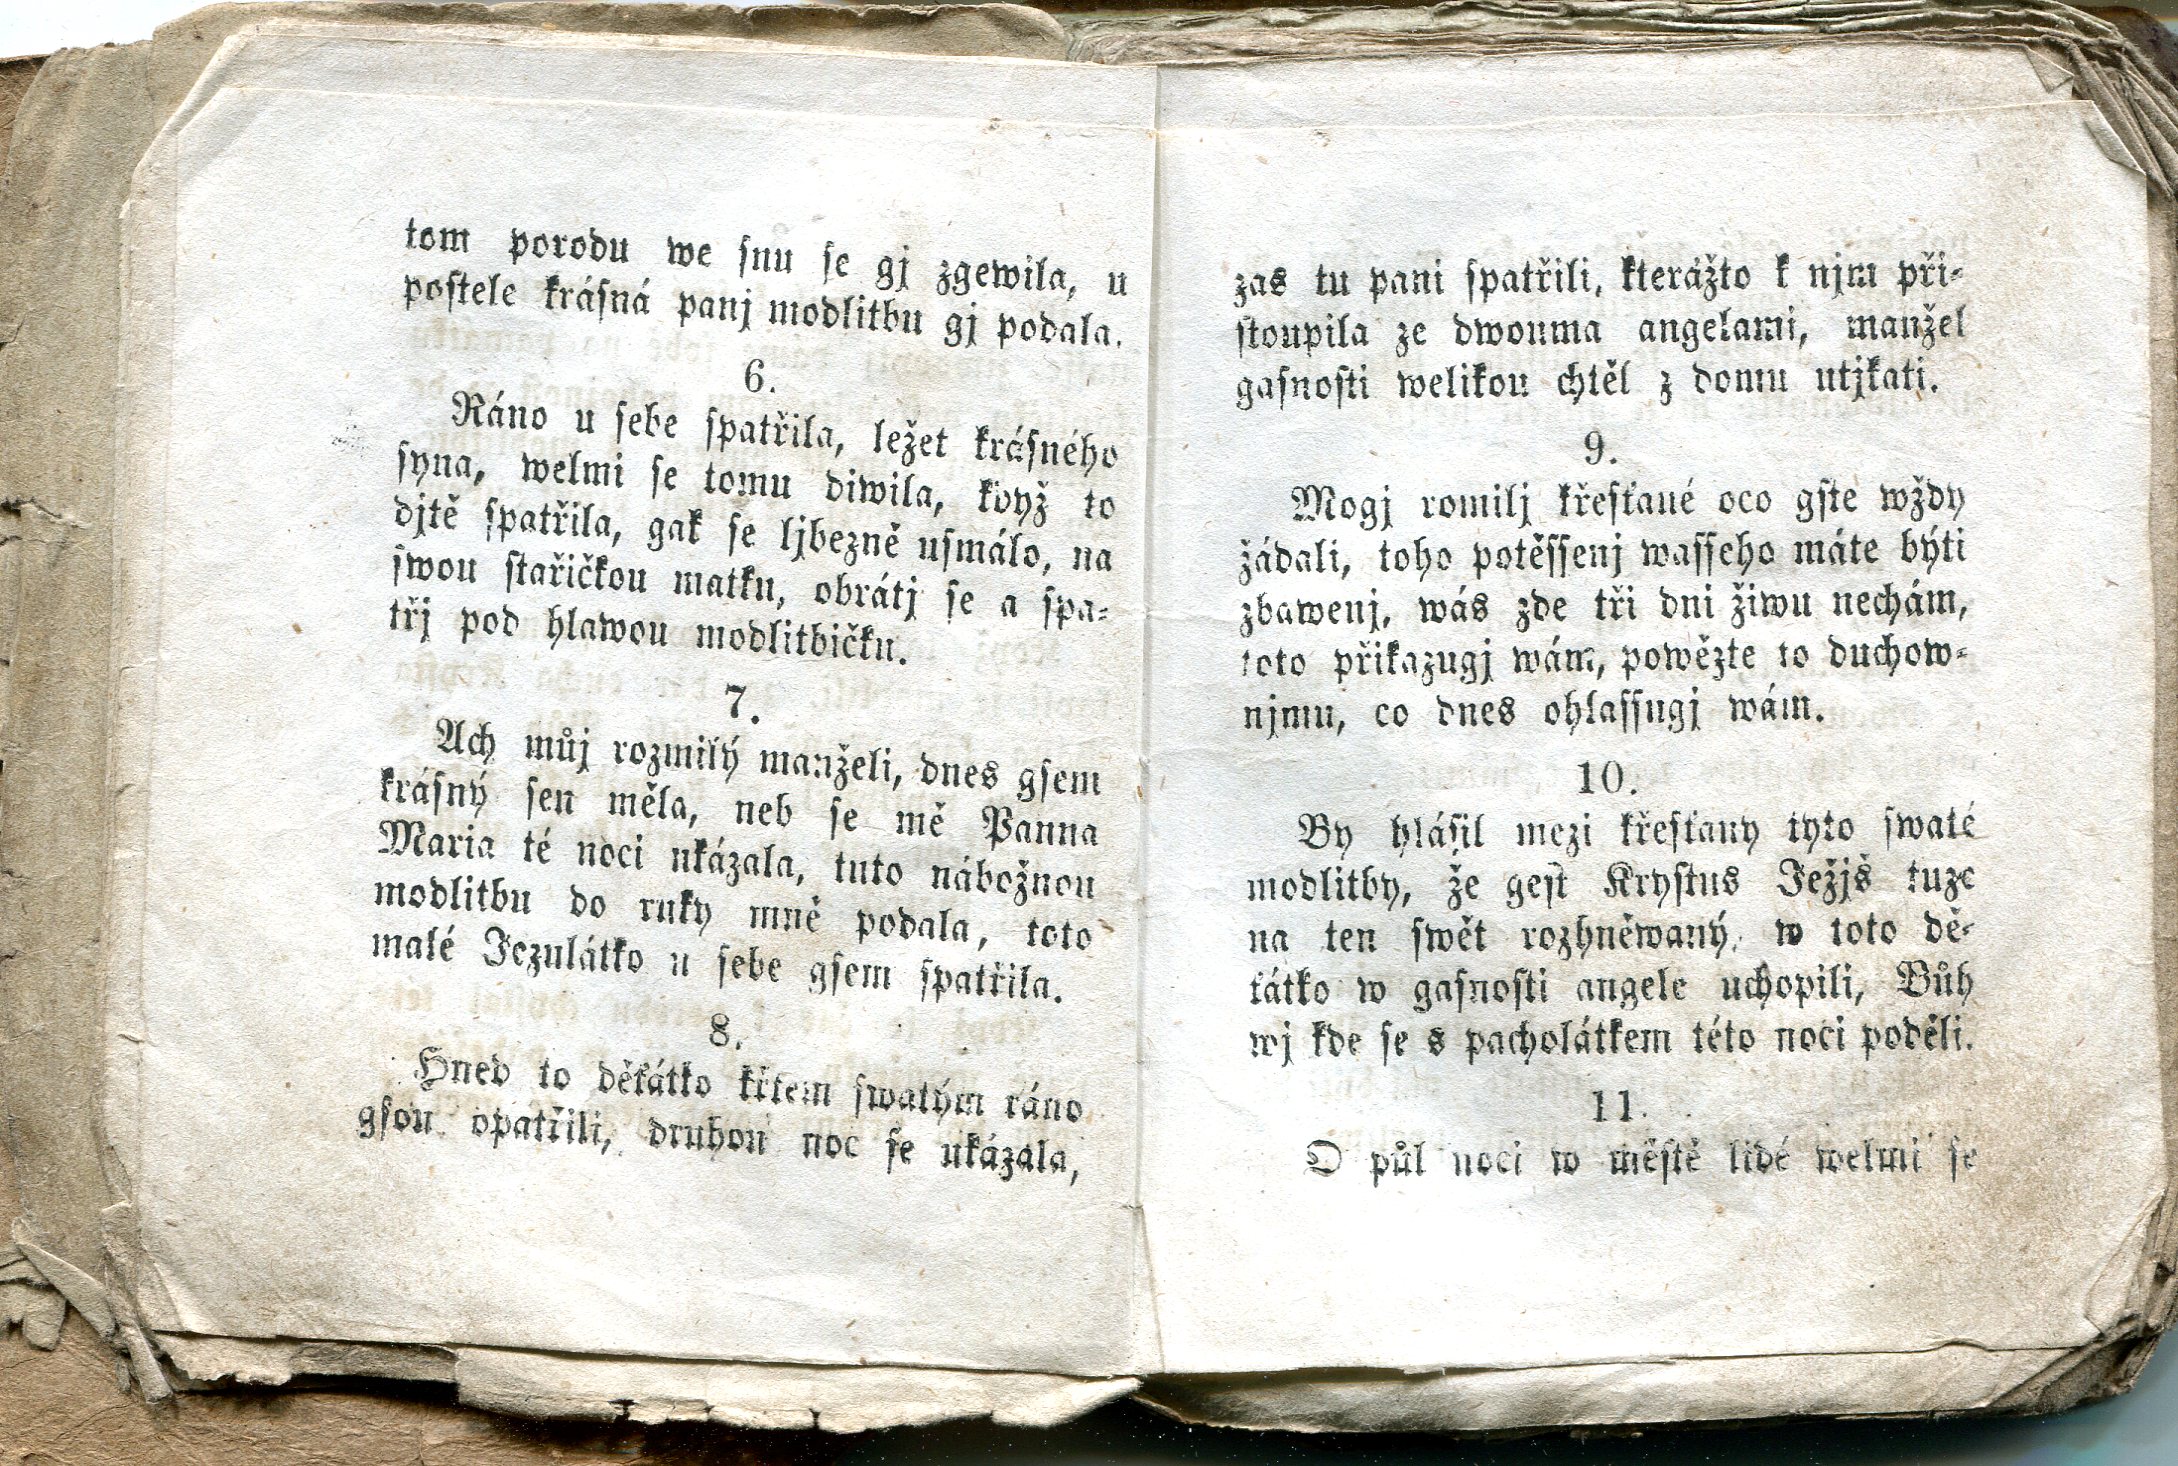 tom porodu we snu se gj zgewila, u
postele krásná panj modlitbu gj podala.
6.
Ráno u sebe spatřila, ležet krásného
syna, welmi se tomu diwila, když to
djtě spatřila, gak se ljbezně usmálo, na
swou stařičkou matku, obrátj se a spa-
třj pod hlawou modlitbičku.
7.
Ach můj rozmilý manželi, dnes gsem
krásný sen měla, neb se mě Panna
Maria té noci ukázala, tuto nábožnou
modlitbu do ruky mně podala, toto
malé Jezulátko u sebe gsem spatřila.
8.
Hned to děťátko křtem swatým ráno
gsou opatřili, druhou noc se ukázala,
zas tu pani spatřili, kterážto k njm při-
stoupila ze dwouma angelami, manžel
gasnosti welikou chtěl z domu utjkati.
9.
Mogj romilj křesťané oco gste wždy
žádali, toho potěssenj wasseho máte býti
zbawenj, wás zde tři dni žiwu nechám,
toto přikazugj wám, powězte to duchow-
njmu, co dnes ohlassugj wám.
10.
By hlásil mezi křesťany tyto swaté
modlitby, že gest Krystus Ježjš tuze
na ten swět rozhněwaný, w toto dě-
ťátko w gasnosti angele uchopili, Bůh
wj kde se s pacholátkem této noci poděli.
11.
O půl noci w městě lidé welmi se